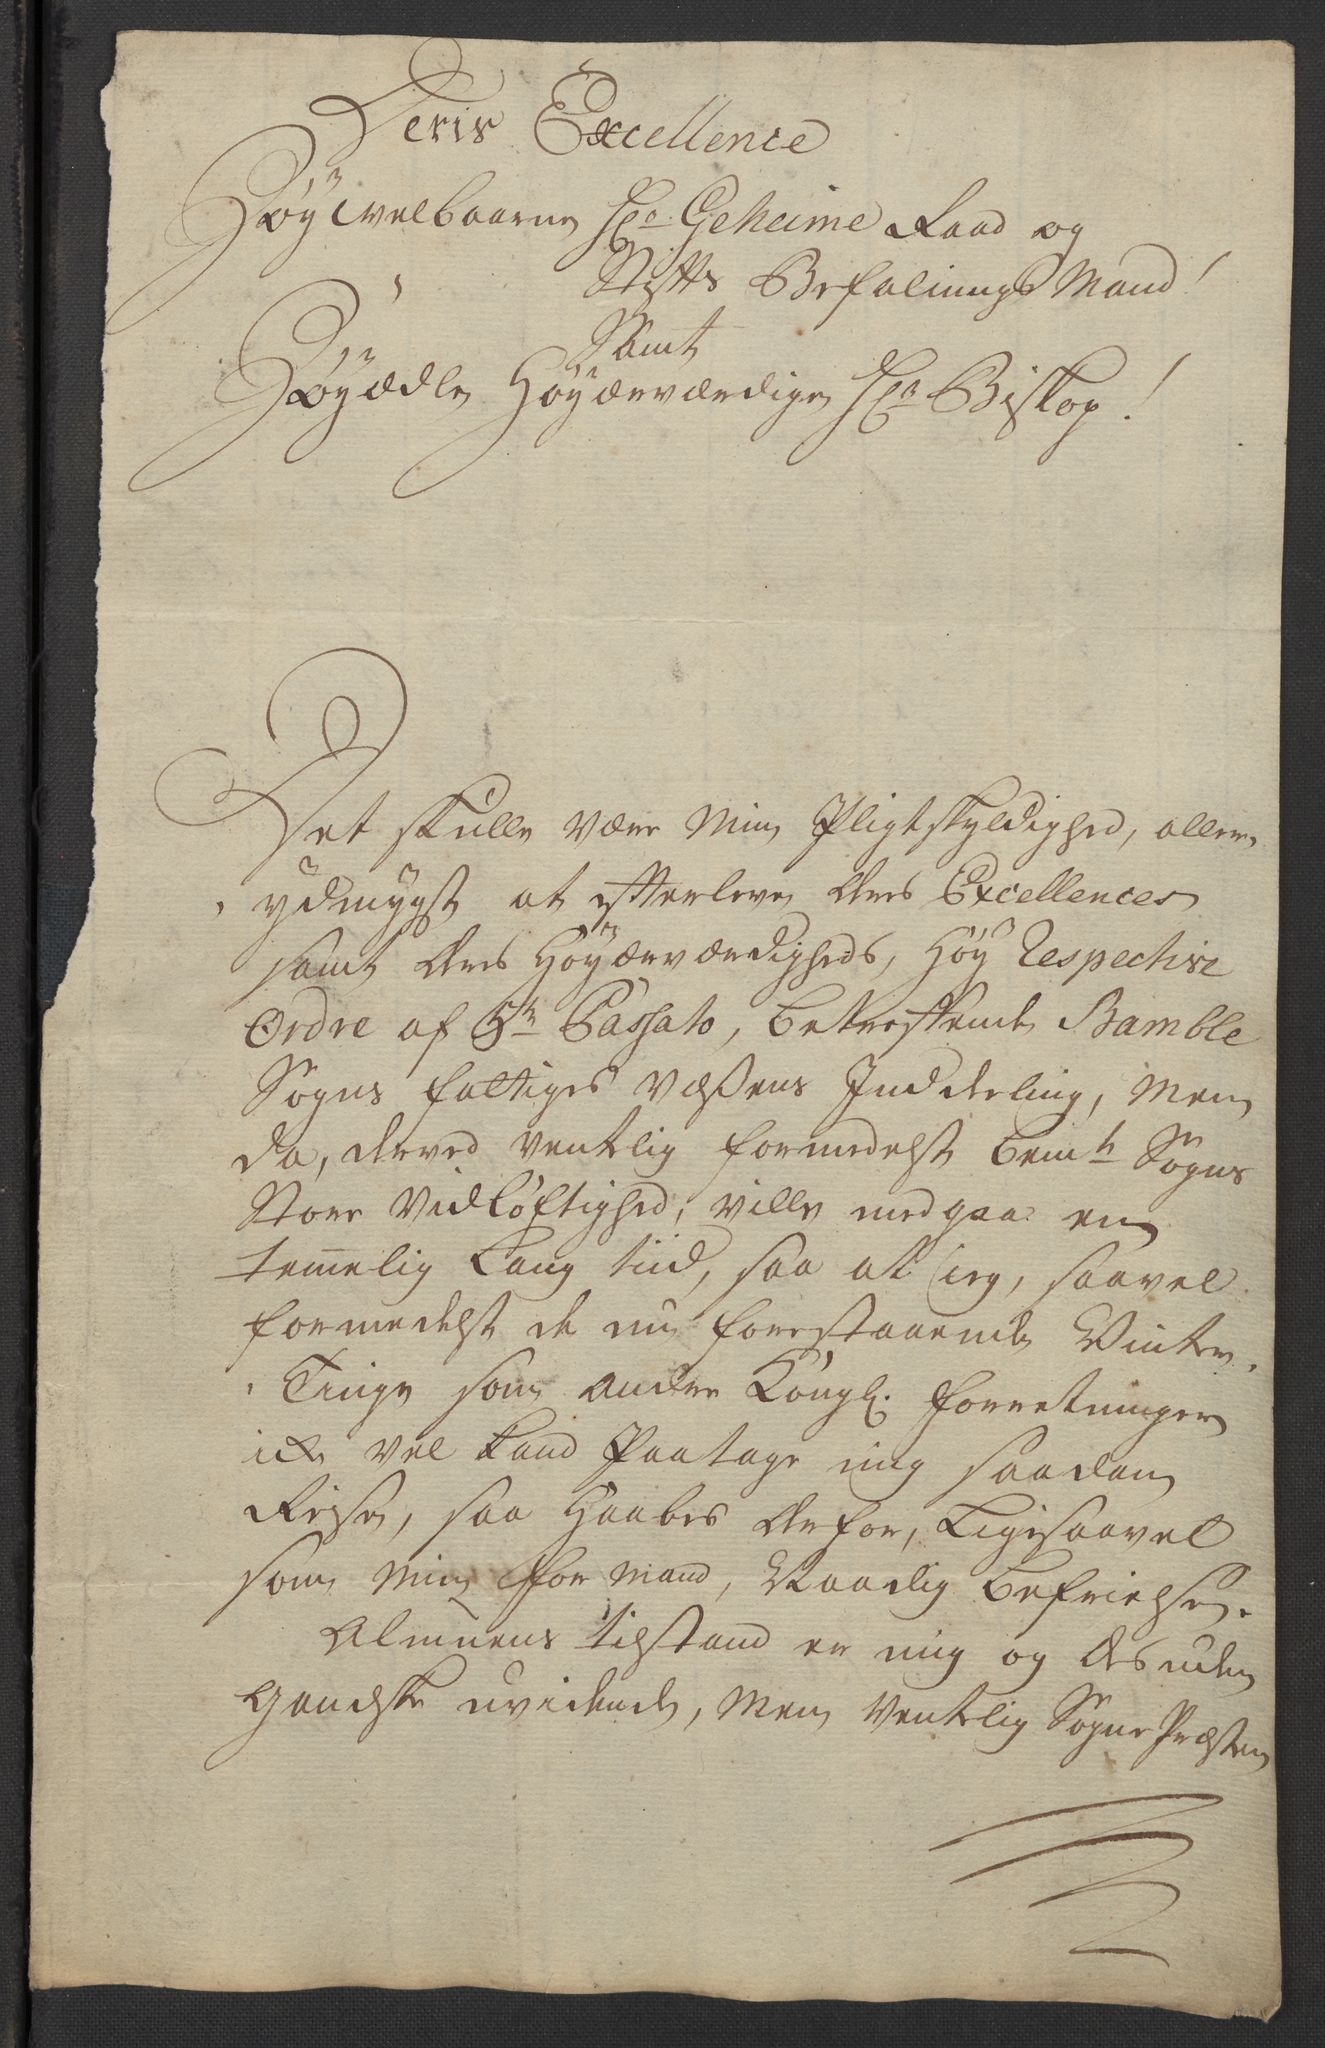 Deris Excellence
Høÿwelbaarne Hr. Geheime Raad og
Stifts Befalings Mand!
Samt
Høÿædle Høÿærværdige Hr. Biskop!
Det skulle være Min Pligtskyldighed, aller-
ydmygst at efterleve deres Excellences
samt deres Høÿærværdigheds, Høÿ Respective
Ordre af 5te Passato, betreffende Bamble
Sogns fattiges Væsens Inddeeling, Men
da, derved ventelig formedelst bemte Sogns
Store Vidløftighed, ville medgaa en
temmelig Lang tiid, saa at ieg, saavel
formedelst de nu forestaaende Vinter-
Tinge som andre Kongl. forretninger
icke vel kand Paatage mig saadan
Reise, saa Haabes derfor, Ligesaavel
som Min for Mand, Naadig befrielse.
Almuens tilstand er mig og desuden
Gandske uvidende, Men Ventelig Sogne Præsten